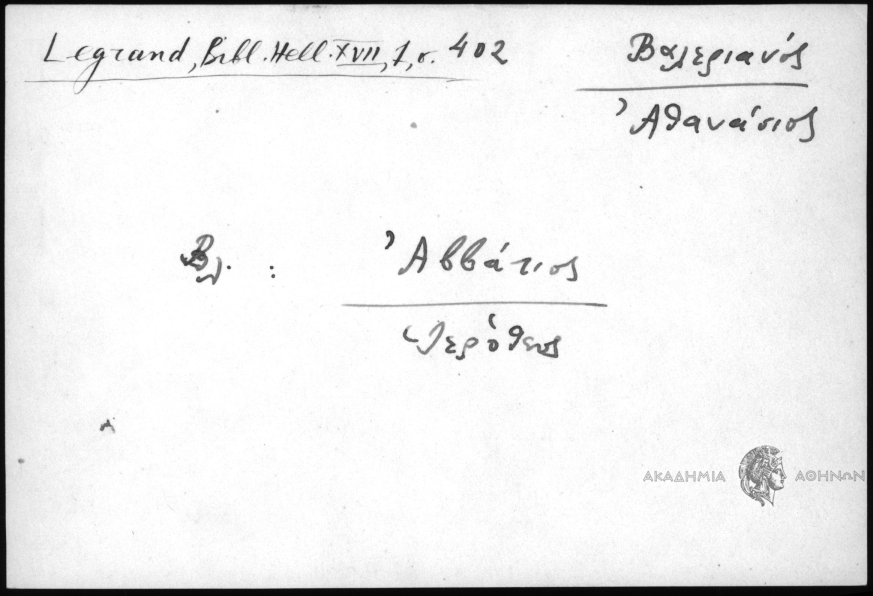 Legrand, Bibl. Hell. XVII, 1, σ. 402
Βαλεριανός
Ἀθανάσιος
Βλ. :
Ἀββάτιος
Ἱερόθεος
ΑΚΑΔΗΜΙΑ ΑΘΗΝΩΝ